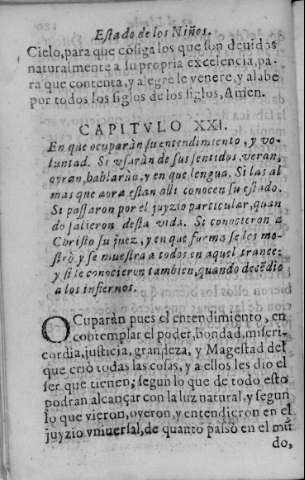 Estado de los Niños.
Cielo, para que cõsiga los que son deuidos
naturalmente a su propria excelencia, pa-
ra que contenta, y alegre le venere, y alabe
por todos los siglos de los siglos, Amen.
CAPITVLO XXI.
En que ocuparàn su entendimiento, y vo-
luntad. Si vsaràn de sus sentidos, veran,
oyran, hablaràn, y en que lengua. Si las al
mas que aora estan alli conocen su estado.
Si passaron por el juyzio particular, quan
do salieron desta vida. Si conocieron a
Christo su juez, y en que forma se les mo-
strò, y se muestra a todos en aquel trance;
y si le conocieron tambien, quando decẽdiò
a los infiernos.
OCuparàn pues el entendimiento, en
contemplar el poder, bondad, miseri-
cordia, justicia, grandeza, y Magestad del
que criò todas las cosas, y a ellos les dio el
ser que tienen; segun lo que de todo esto
podran alcançar con la luz natural, y segun
lo que vieron, oyeron, y entendieron en el
juyzio vniuersal, de quanto passò en el mũ
do,